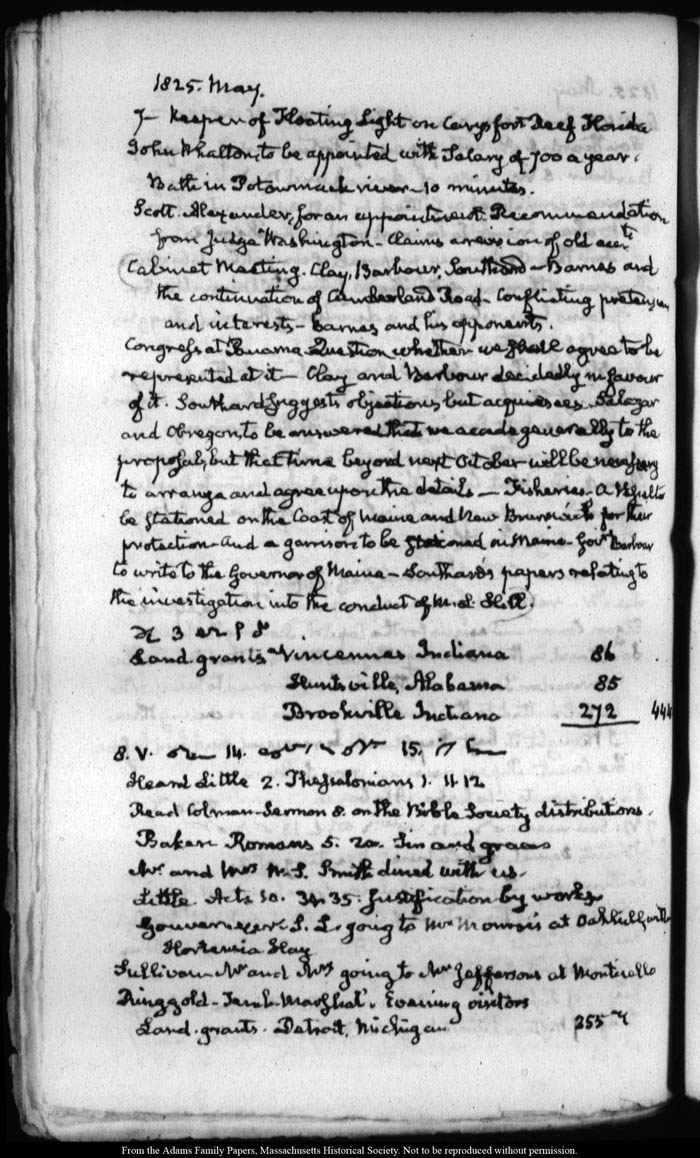 1825. May.
7— Keeper of Floating Light on Carysfort Reef Florida
John Whalton, to be appointed with Salary of 700 a year.
Bath in Potowmack river— 10 minutes.
Scott. Alexander, for an appointment. Recommendation
from Judge Washington. Claims a revision of old acc.ts
Cabinet Meeting. Clay, Barbour, Southard— Barnes and
the continuation of Cumberland Road— Conflicting pretensions
and interests— Barnes and his opponents.
Congress at Panama. Question whether we shall agree to be
represented at it— Clay and Barbour decidedly in favour
of it. Southard suggests objections, but acquiesces. Salazar
and Obregon, to be answered that we accede generally to the
proposal, but that time beyond next October will be necessary
to arrange and agree upon the details— Fisheries— A Vessel to
be stationed on the Coast of Maine and New Brunswick for their
protection— and a garrison to be stationed in Maine— Govr. Barbour
to write to the Governor of Maine— Southard's papers relating to
the investigation into the conduct of
3
Land. grants Vincennes Indiana 86
Huntsville, Alabama 85
Brookville Indiana 272 444
8. V. 14. 15.
Heard Little 2. Thessalonians 1. 11. 12
Read Colman— Sermon 8. on the Bible Society distributions.
Baker Romans 5. 20. Sin and grace
Mr. and Mrs. W. S. Smith dined with us.
Little. Acts 10. 34. 35. Justification by works
Gouverneur S. L. going to Mr Monroe's at Oakhill, with
Hortensia Hay
Sullivan— Mr and Mrs going to Mr Jefferson's at Monticello
Ringgold— Marshal. Evening visitors
Land. grants. Detroit, Michigan 255
From the Adams Family Papers, Massachusetts Historical Society. Not to be reproduced without permission.